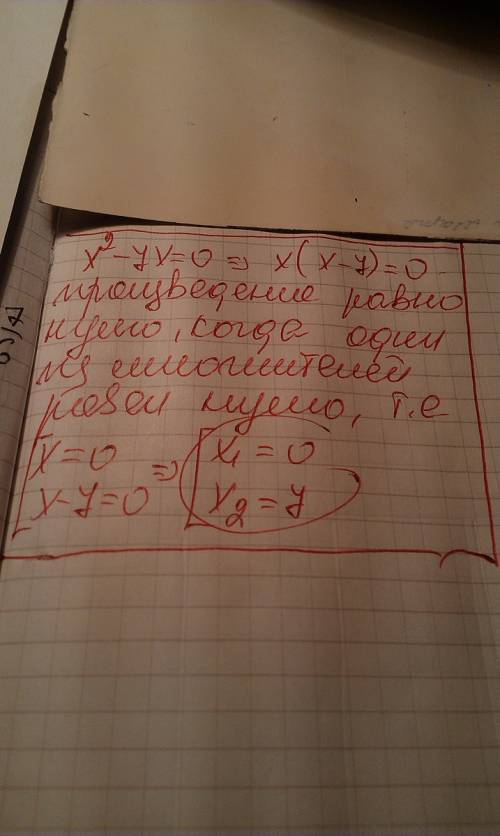 x² - 7x = 0 => x(x-7) = 0 -
произведение равно
нулю, когда один
из множителей
равен нулю, т.е
[x = 0 => [x₁ = 0
[x-7 = 0 [x₂ = 7